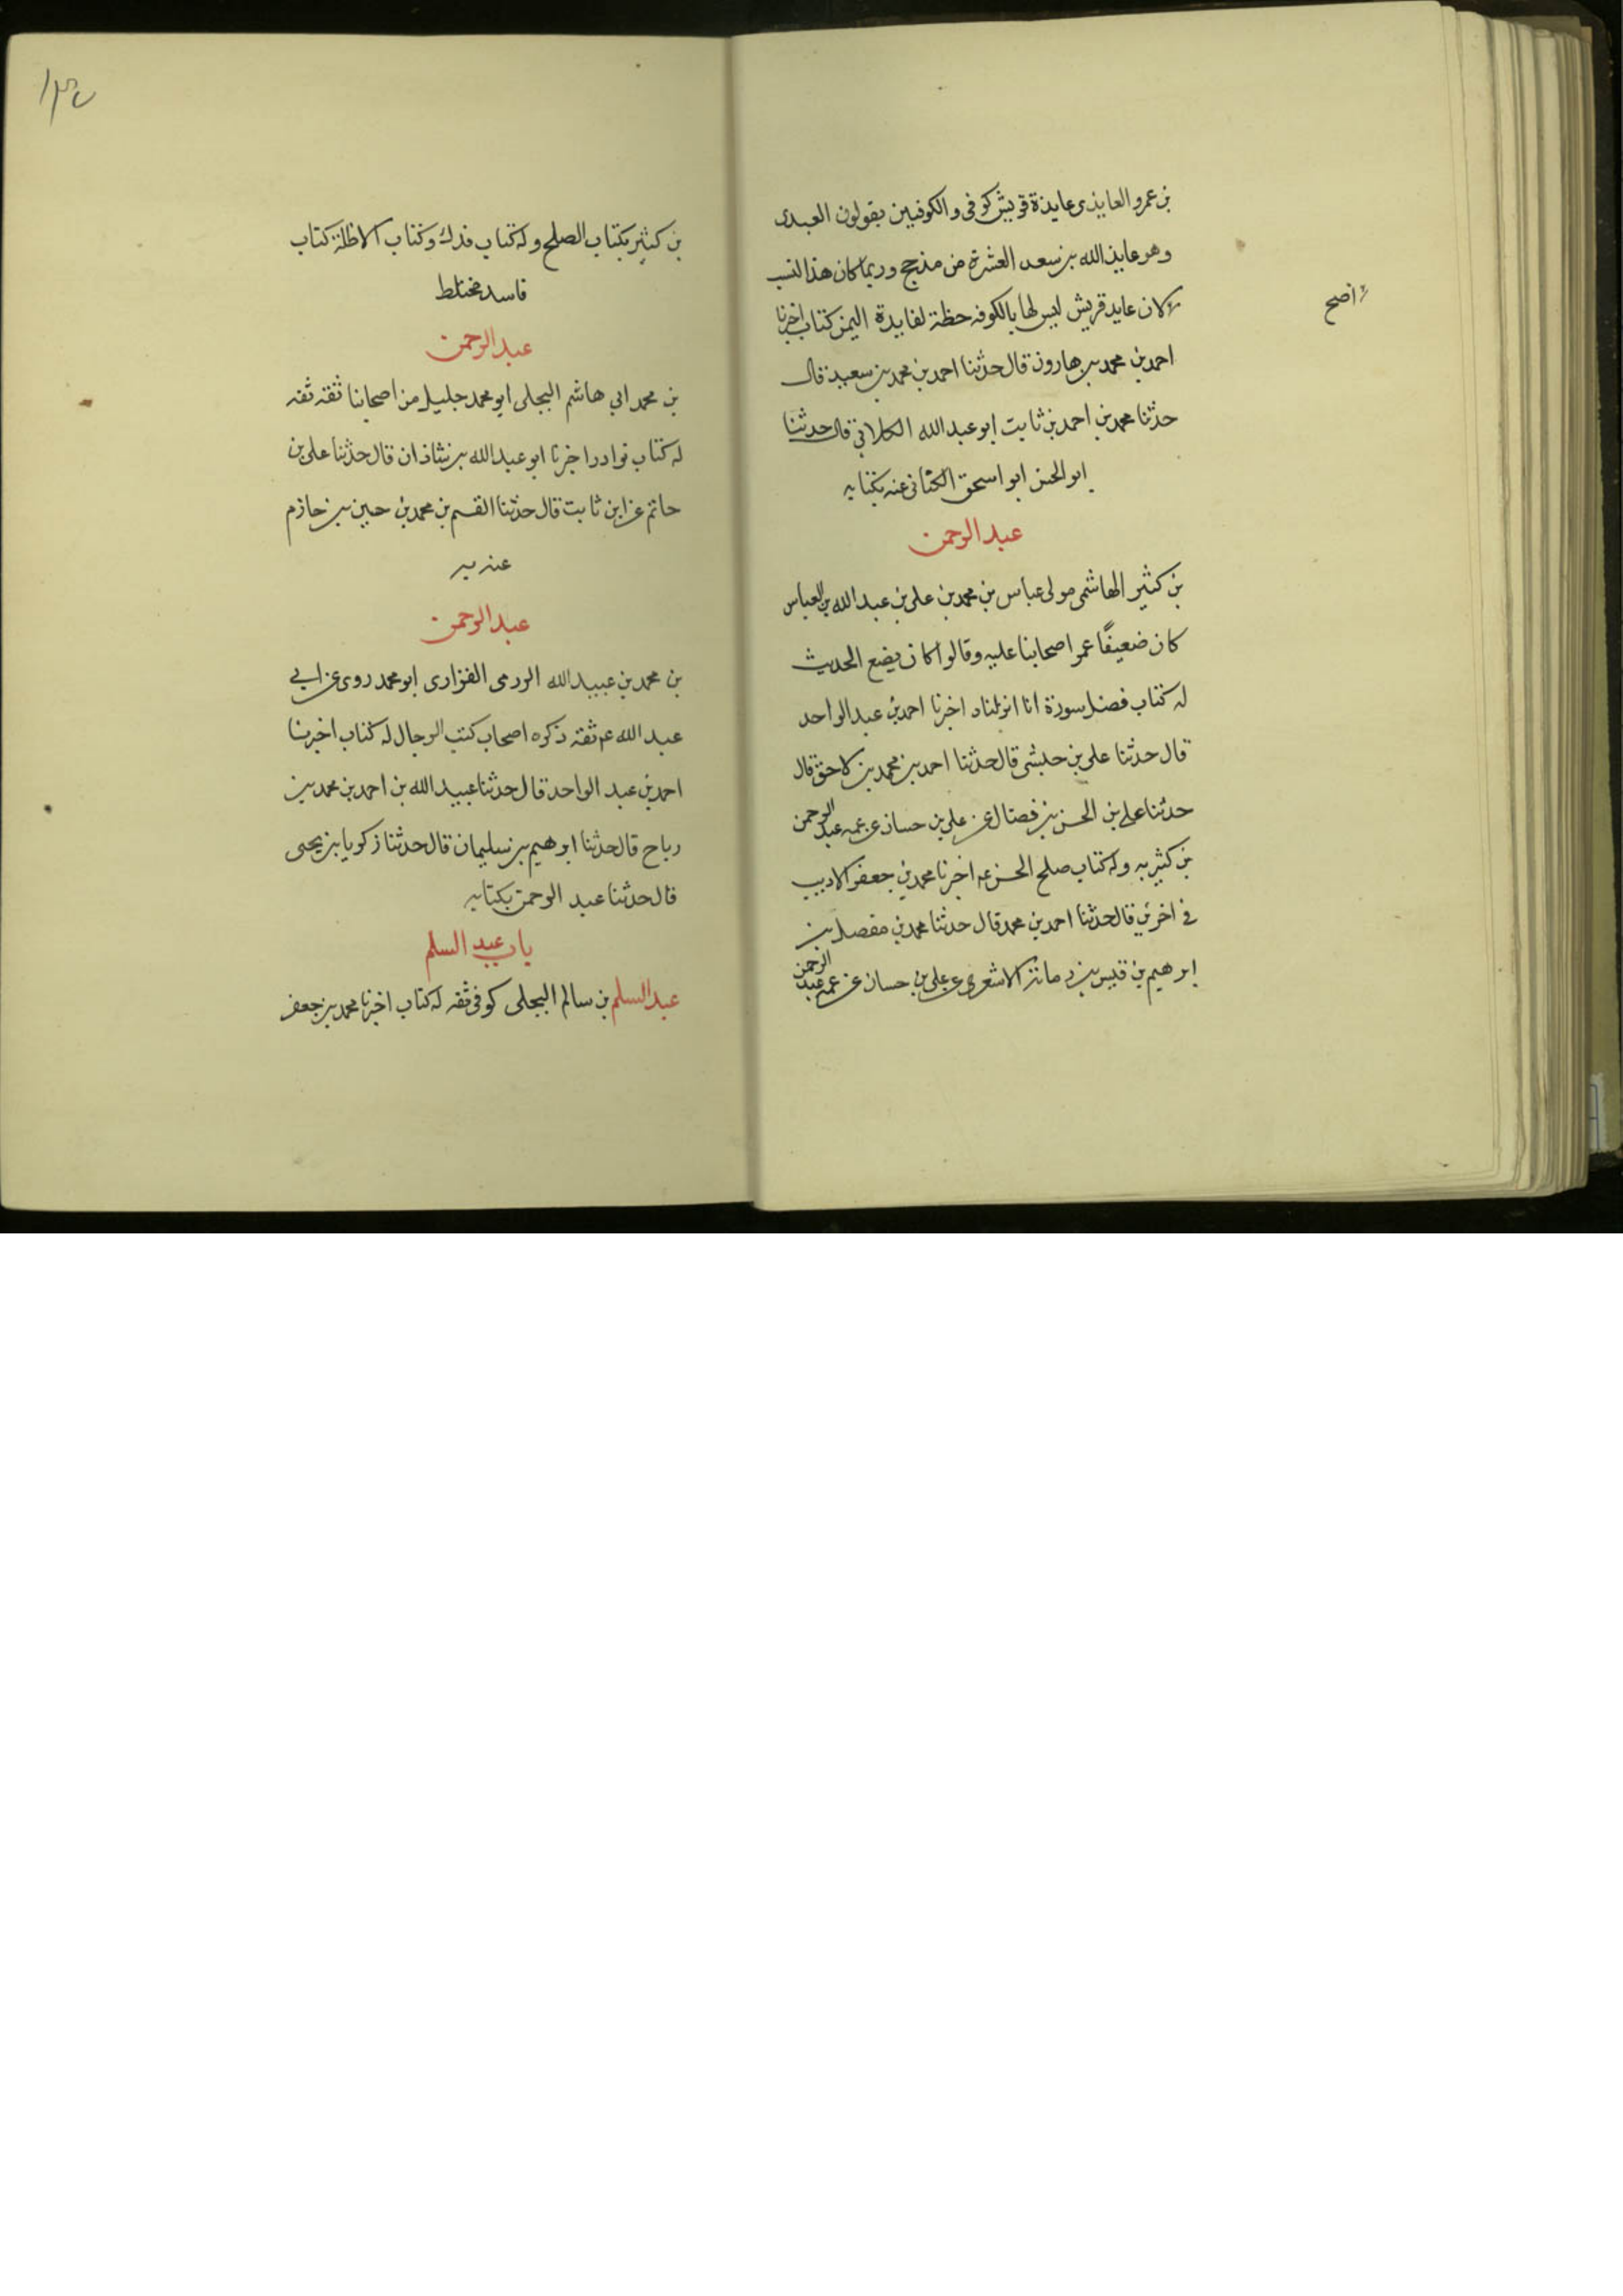 بن عمرو العايذى عايذة قريش كوفى والكوفيين يقولون العبدى
وهو عايذ الله بن سعد العشرة من مذحج وربما كان هذا النسب
لان عايد قريش ليس لها بالكوفه حظة لعايدة اليمن كتاب اخبرنا
اصح
احمد بن محمد بن هارون قال حدثنا احمد بن محمد بن سعيد قال
حدثنا محمد بن احمد بن ثابت ابو عبد الله قال حدثنا
ابو الحسن ابو اسحق الكتانى عنه بكتابه
عبد الرحمن
بن كثير الهاشمى مولى عباس بن محمد بن على بن عبد الله بن العباس
كان ضعيفًا غمز اصحابنا عليه وقالوا كان يضع الحديث
له كتاب فضل سورة انا انزلناه اخبرنا احمد بن عبد الواحد
قال حدثنا على بن حبشى قال حدثنا احمد بن محمد بن لاحق قال
حدثنا على بن الحسن بن فضال عن على بن حسان عن عمه عبد الرحمن
بن كثير به وله كتاب صلح الحسن عم اخبرنا محمد بن جعفر الاديب
فى اخرين قال حدثنا احمد بن محمد قال حدثنا محمد بن مفضل بن
ابرهيم بن قيس بن رمانة الاشعرى عن على بن حسان عن عمه عبد الرحمن
١٣٤
بن كثير بكتاب الصلح وله كتاب فدك وكتاب الاظلة كتاب
فاسد مختلط
عبد الرحمن
بن محمد ابى هاشم البجلى ابو محمد جليل من اصحابنا ثقة ثقه
له كتاب نوادر اخبرنا ابو عبد الله بن شاذان قال حدثنا على بن
حاتم عن ابن ثابت قال حدثنا القسم بن محمد بن حسين بن حازم
عنه به
عبد الرحمن
بن محمد بن عبيد الله الرزمى الفزارى ابو محمد روى عن ابى
عبد الله عم ثقه ذكره اصحاب كتب الرجال له كتاب اخبرنا
احمد بن عبد الواحد قال حدثنا عبيد الله بن احمد بن محمد بن
رباح قال حدثنا ابرهيم بن سليمان قال حدثنا زكريا بن يحيى
قال حدثنا عبد الرحمن بكتابه
باب عبد السلم
عبد السلم بن سالم البجلى كوفى ثقه له كتاب اخبرنا محمد بن جعفر